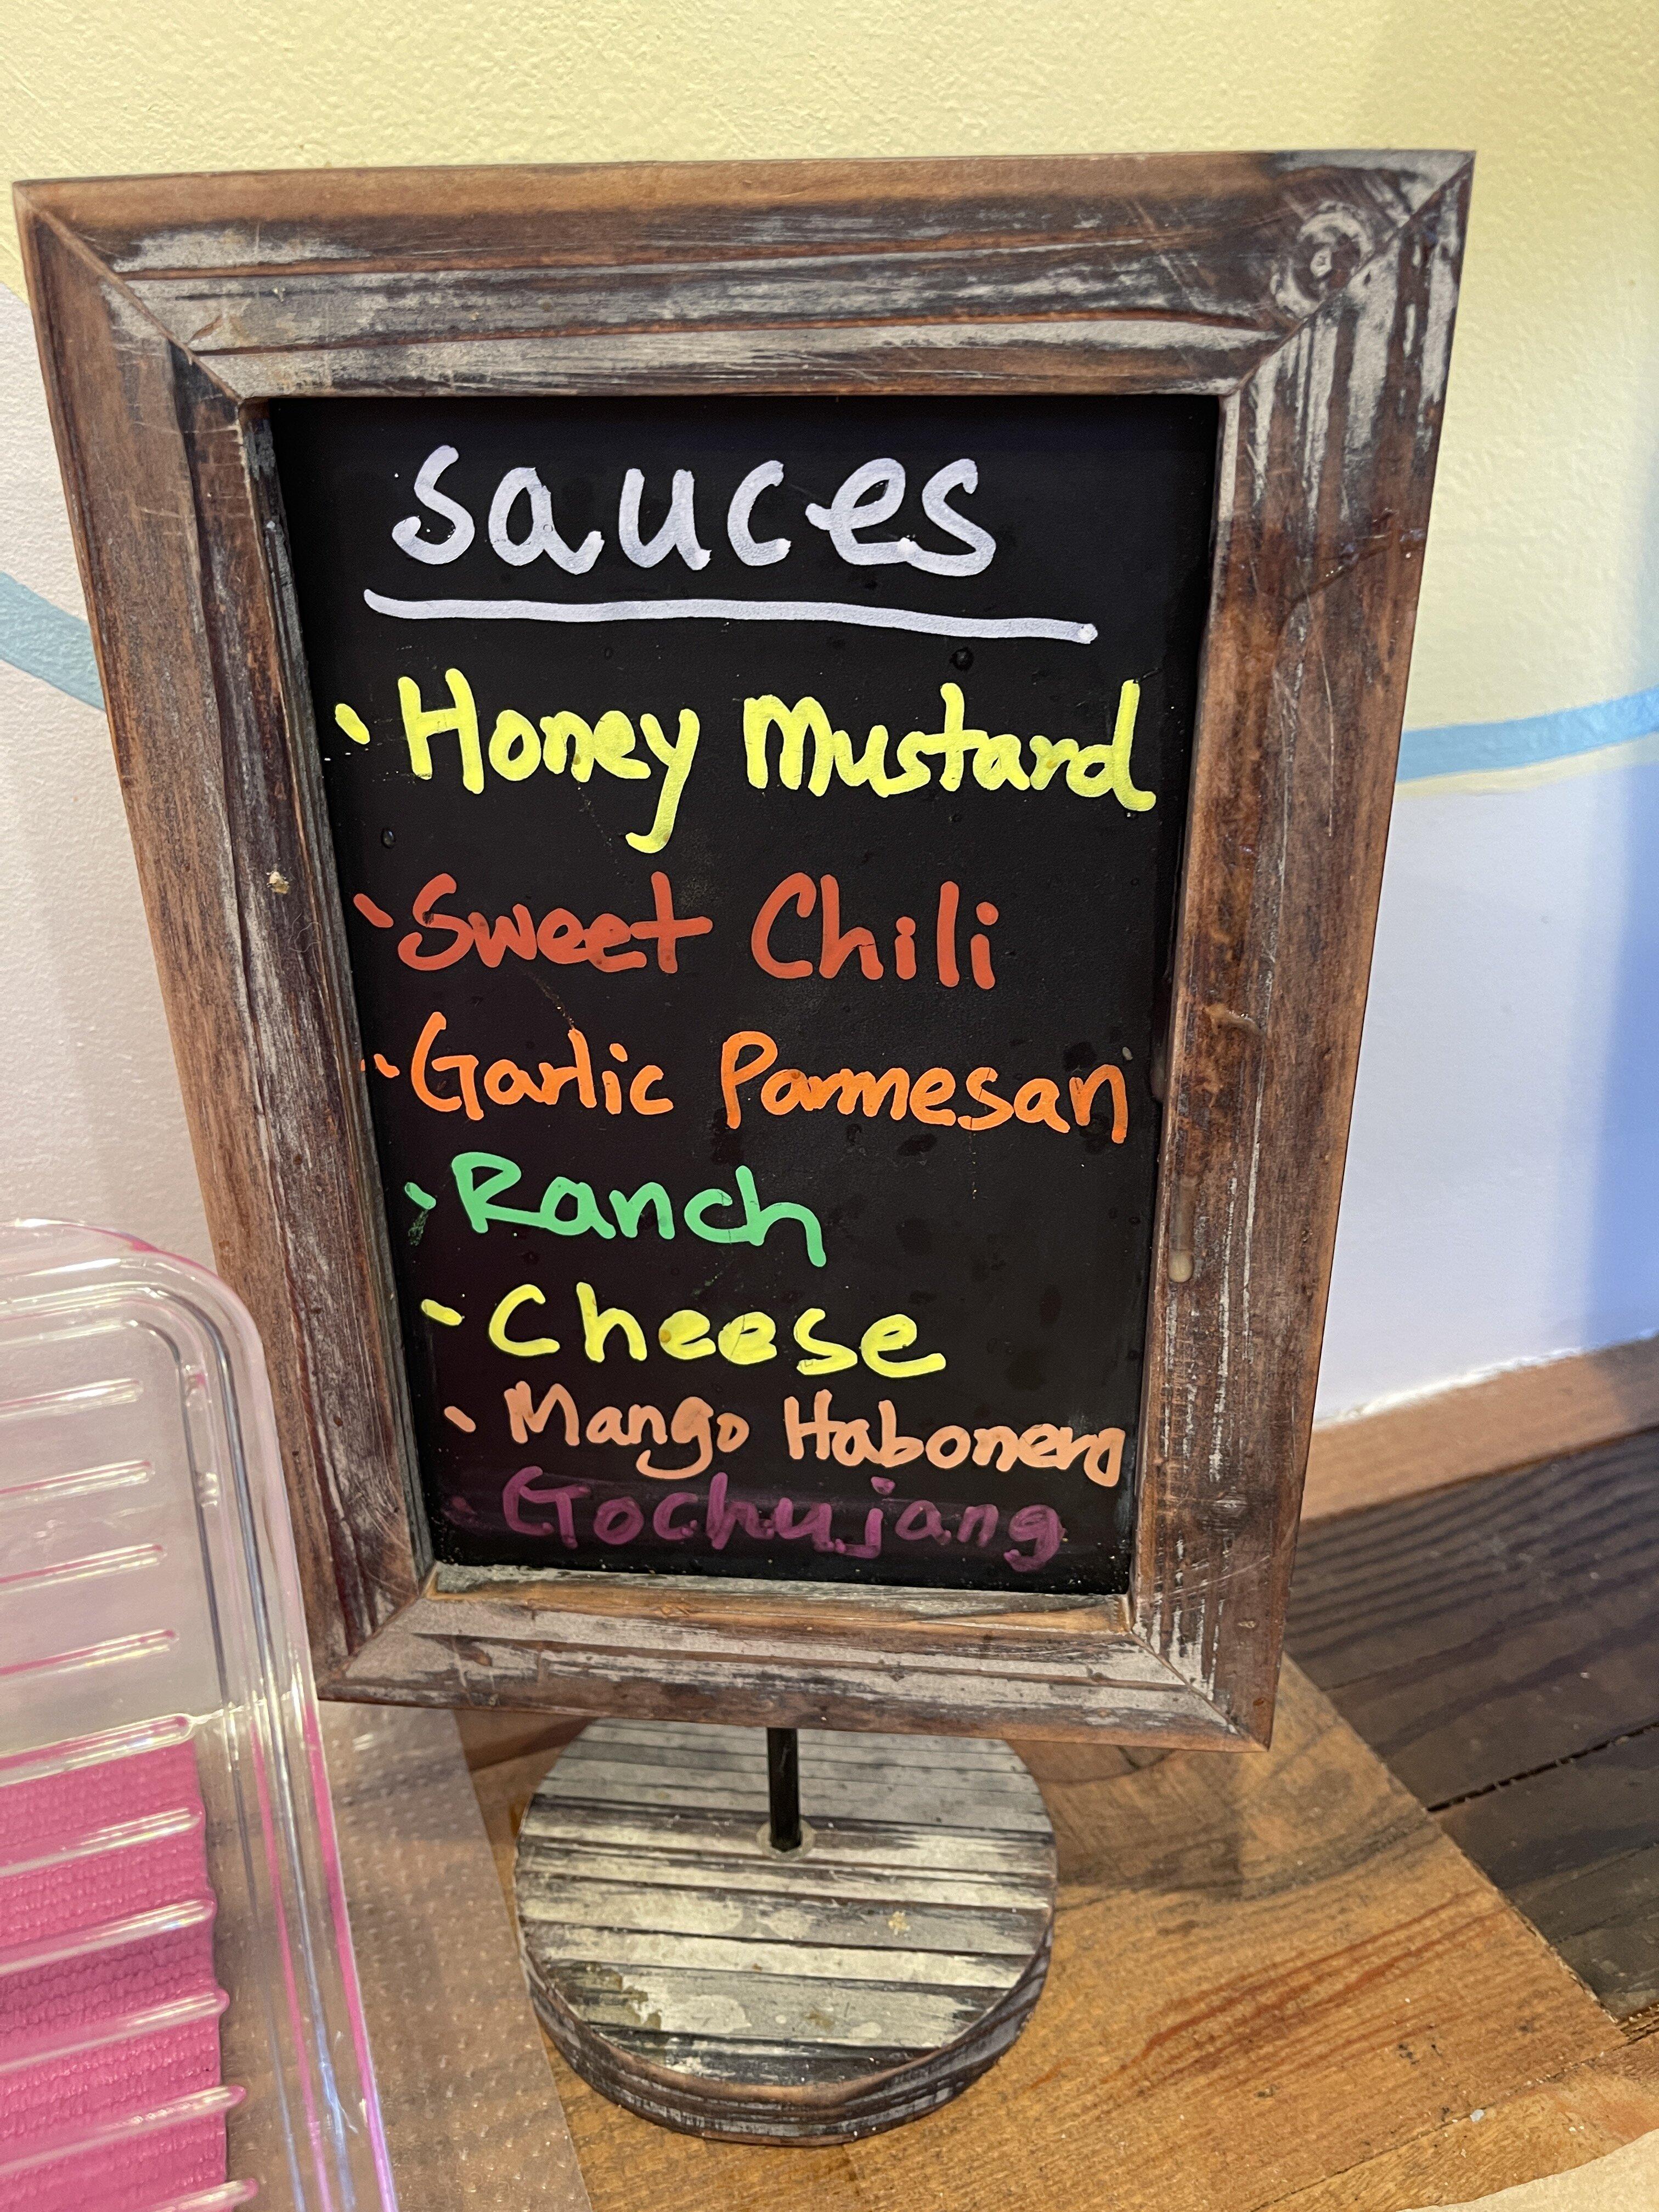 sauces
· Honey Mustard
· Sweet Chili
· Garlic Parmesan
· Ranch
· Cheese
· Mango Habonero
· Gochujang